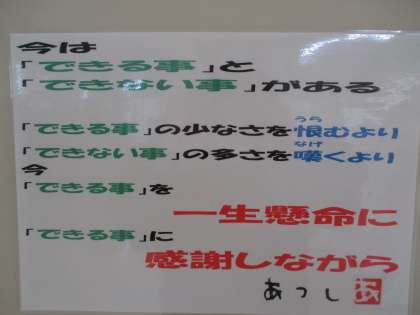 今は
「できる事」と
「できない事」がある
「できる事」の少なさを恨むより
うら
「できない事」の多さを嘆くより
なげ
今
「できる事」を
一生懸命に
「できる事」に
感謝しながら
あつし